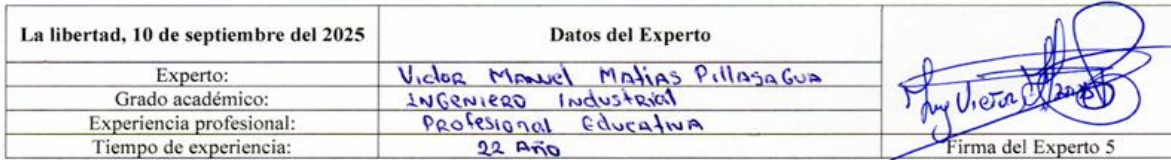 La libertad, 10 de septiembre del 2025
Datos del Experto
Experto: Victor Manuel Matias Pillasagua
Grado académico: Ingeniero Industrial
Experiencia profesional: Profesional Educativa
Tiempo de experiencia: 22 Año
Ing Victor
Firma del Experto 5